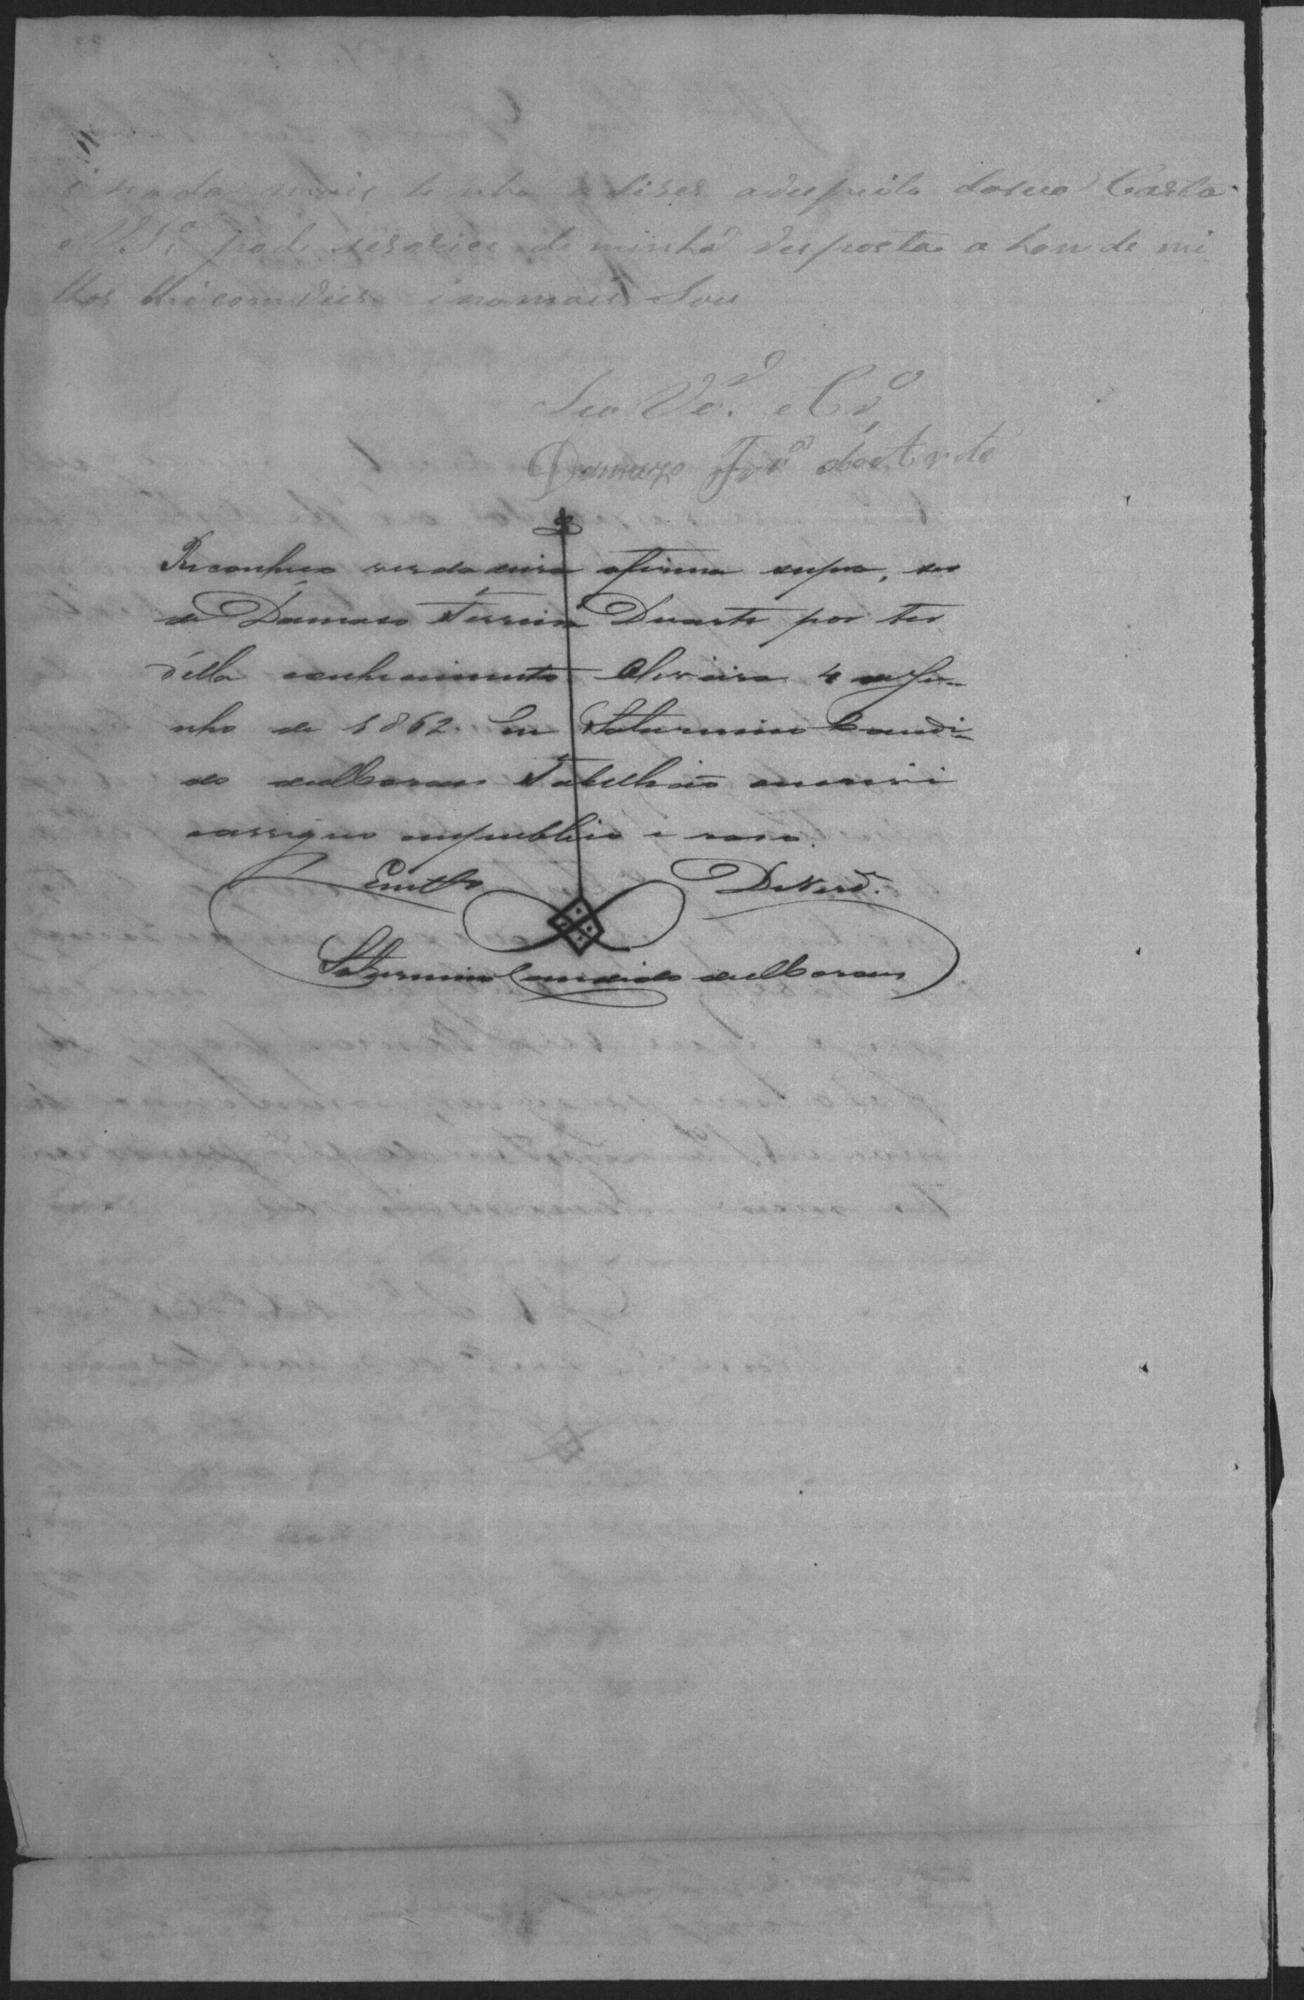 i nada mais tenho a diser arespeito dasua Carta
e V.Sª pode de minha resposta a hon de mi
lhor inomais Sou
Seu Vdºr. e Crdº
Damazo Frª duarte
Reconheco verdadeira afirma supra, ser
de Damaso Ferreira Duarte por ter
d'ella conhecimento Oliveira 4 de Ju-
nho de 1862. Eu Saturnino Candi-
do deMoraes Tabellião escrevi
eassigno empublico e raso.
Emtto DaVerdª.
Saturnino Candido deMoraes